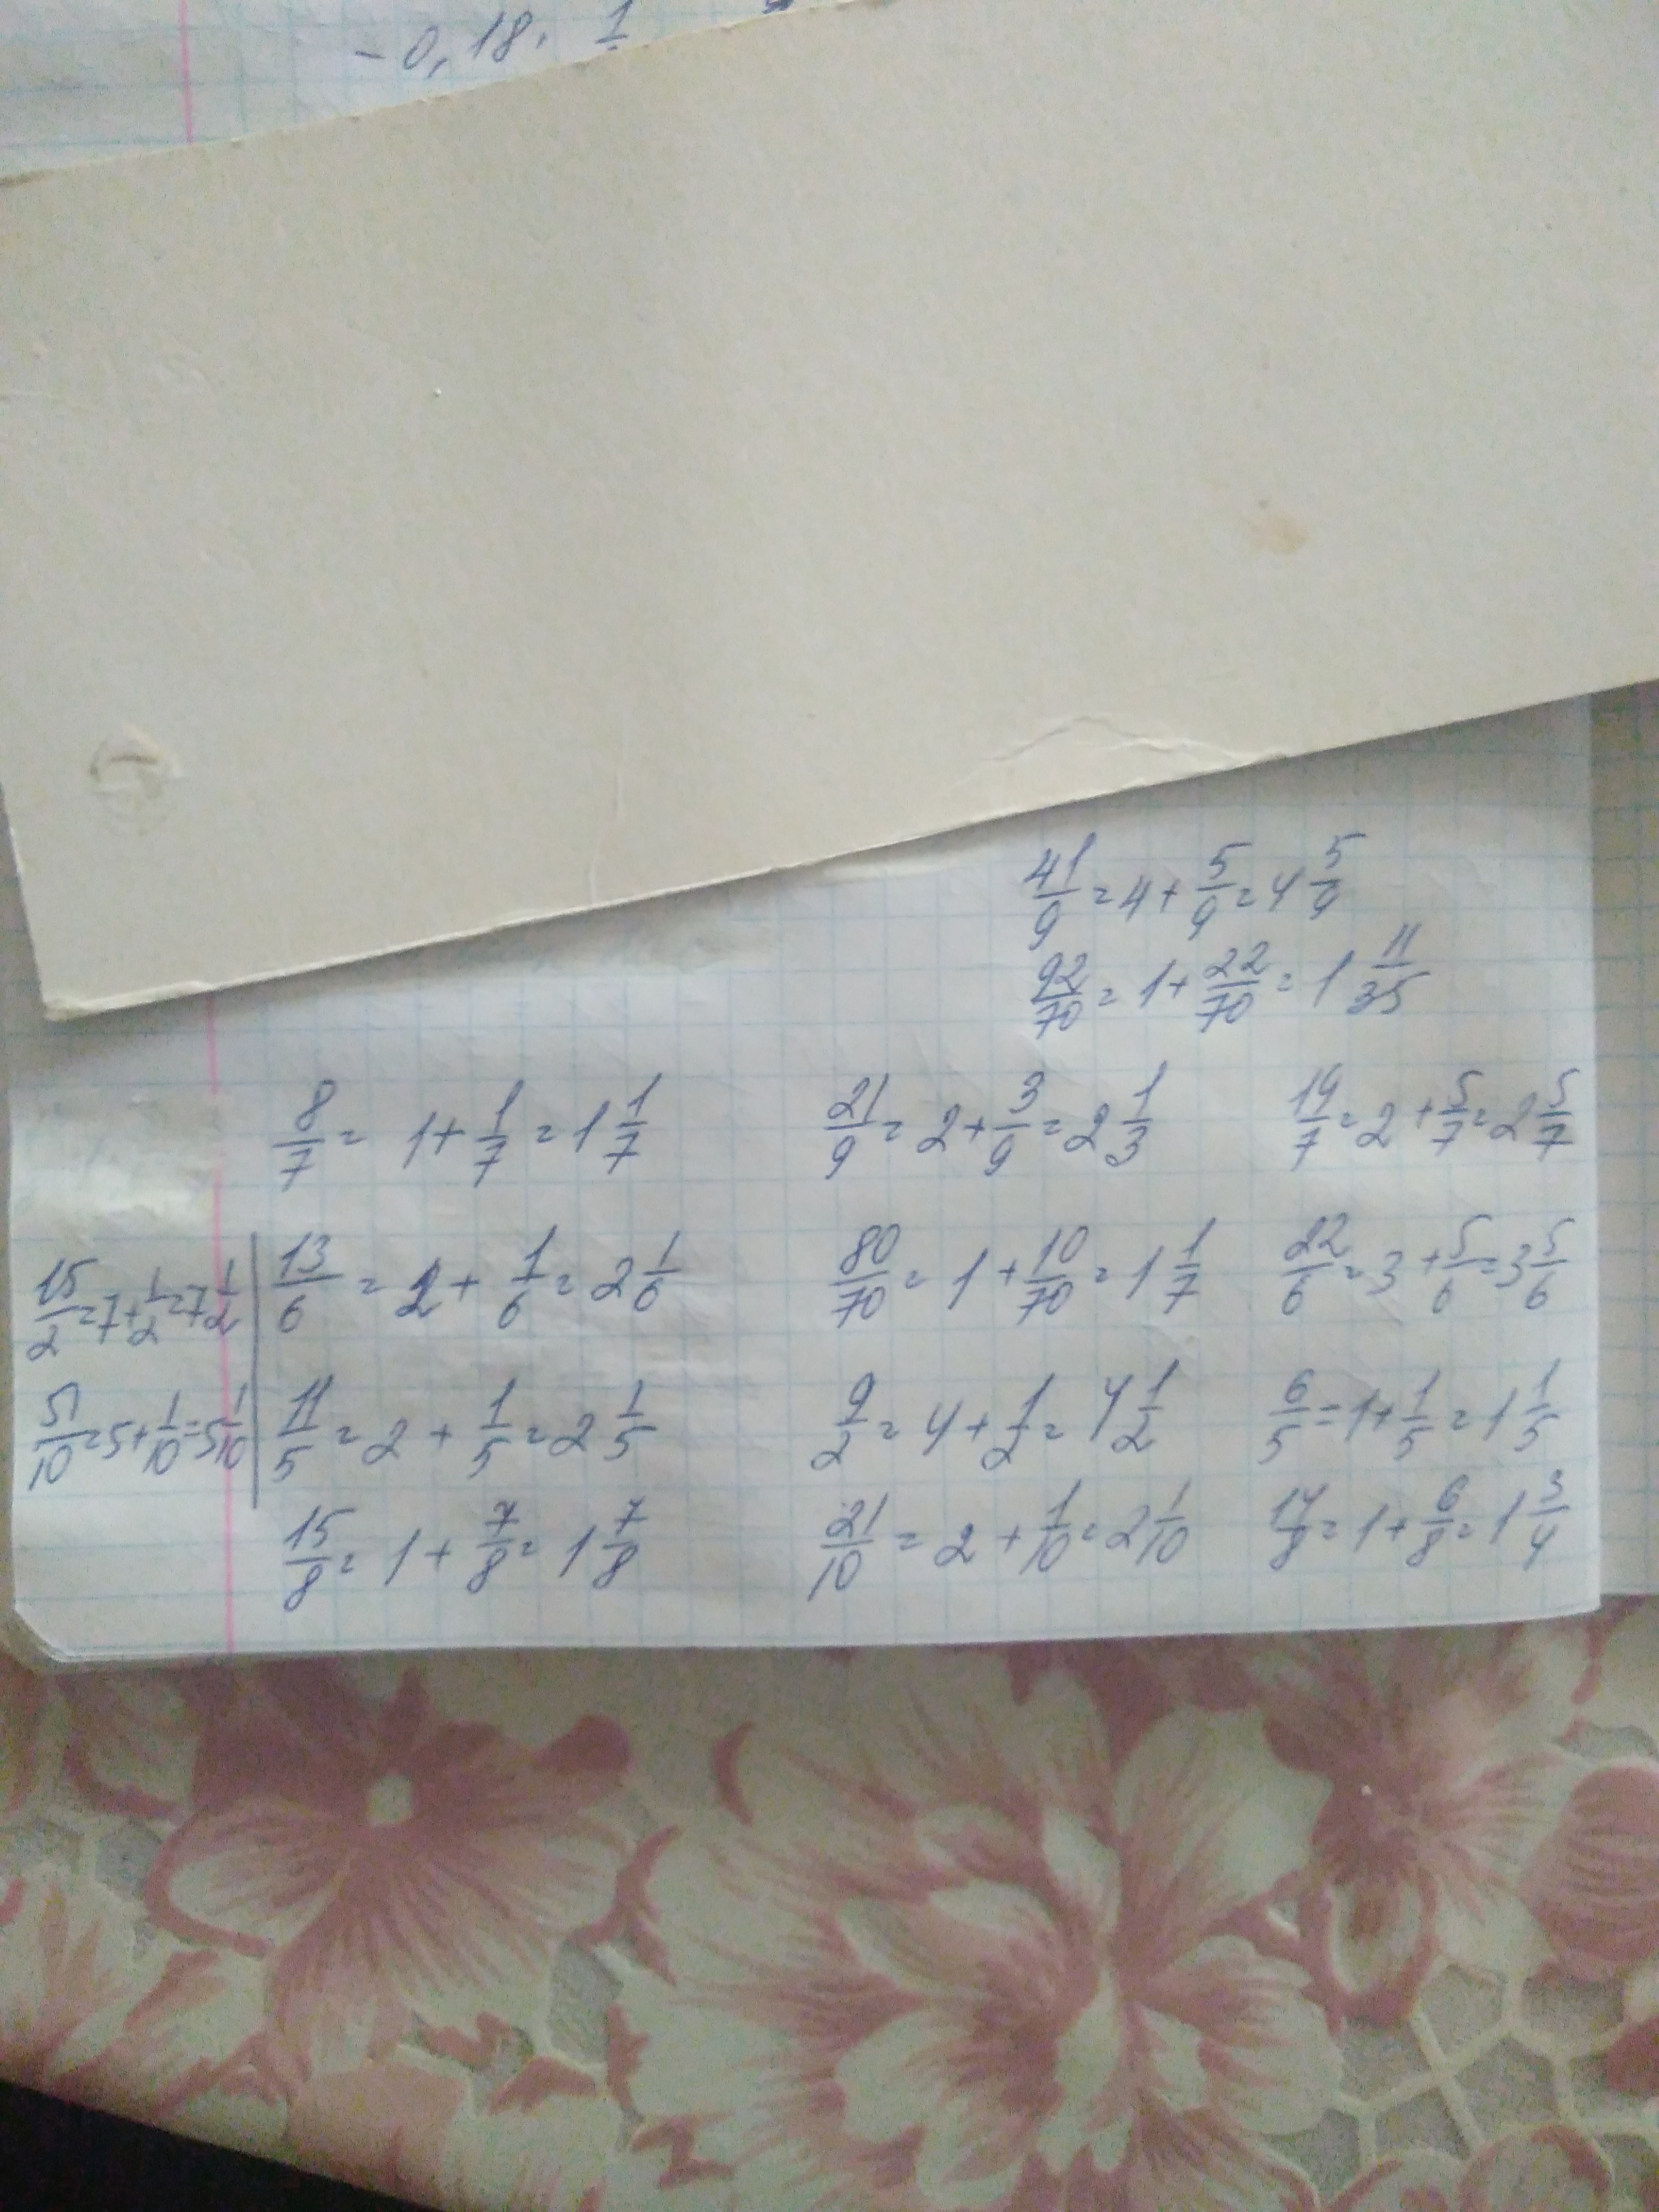 -0,18. 1
41/9 = 4 + 5/9 = 4 5/9
92/70 = 1 + 22/70 = 1 11/35
8/7 = 1 + 1/7 = 1 1/7
21/9 = 2 + 3/9 = 2 1/3
19/7 = 2 + 5/7 = 2 5/7
15/2 = 7 + 1/2 = 7 1/2
13/6 = 2 + 1/6 = 2 1/6
80/70 = 1 + 10/70 = 1 1/7
22/6 = 3 + 5/6 = 3 5/6
51/10 = 5 + 1/10 = 5 1/10
11/5 = 2 + 1/5 = 2 1/5
9/2 = 4 + 1/2 = 4 1/2
6/5 = 1 + 1/5 = 1 1/5
15/8 = 1 + 7/8 = 1 7/8
21/10 = 2 + 1/10 = 2 1/10
14/8 = 1 + 6/8 = 1 3/4